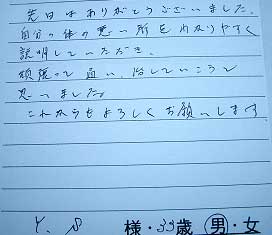 先日はありがとうございました。
自分の体の悪い所をわかりやすく
説明していただき、
頑張って通い、治していこうと
思いました。
これからもよろしくお願いします
Y. S 様・33歳 男・女